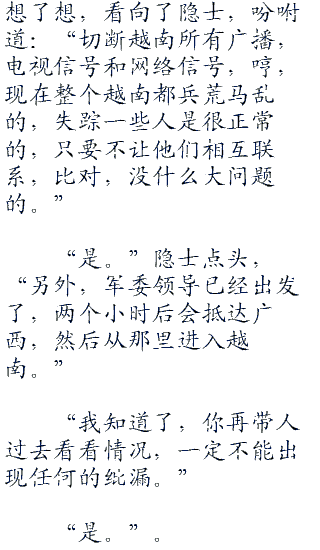 想了想，看向了隐士，吩咐
道：“切断越南所有广播，
电视信号和网络信号，哼，
现在整个越南都兵荒马乱
的，失踪一些人是很正常
的，只要不让他们相互联
系，比对，没什么大问题
的。”
“是。”隐士点头，
“另外，军委领导已经出发
了，两个小时后会抵达广
西，然后从那里进入越
南。”
“我知道了，你再带人
过去看看情况，一定不能出
现任何的纰漏。”
“是。”。